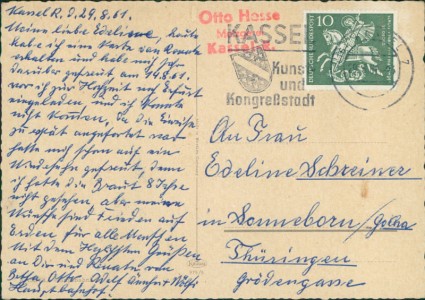 Kassel R. D. 29.8.61.
Meine liebe Edeline, heute
habe ich eine Karte von
erhalten und habe mich sehr
darüber gefreut am 19.8.61.
war ich zur Hochzeit nach Erfurt
eingeladen, und ich konnte
nicht kommen, da die Einreise
zu spät angefordert war
hatte mich schon auf ein
Wiedersehn gefreut, denn
ich hatte die Braut 8 Jahre
nicht gesehen, aber meine
Wünsche sind Frieden auf
Erden für alle Menschen
Mit den Herzlichsten Grüßen
an Dich und Renate von
Otto,
Hauptbahnhof.
Otto Hasse
Kassel
KASSEL
Kunst
und
Kongreßstadt
10
DEUTSCHE BUNDESPOST
An Frau
Edeline Schreiner
in Sonneborn/Gotha
Thüringen
Grödengasse